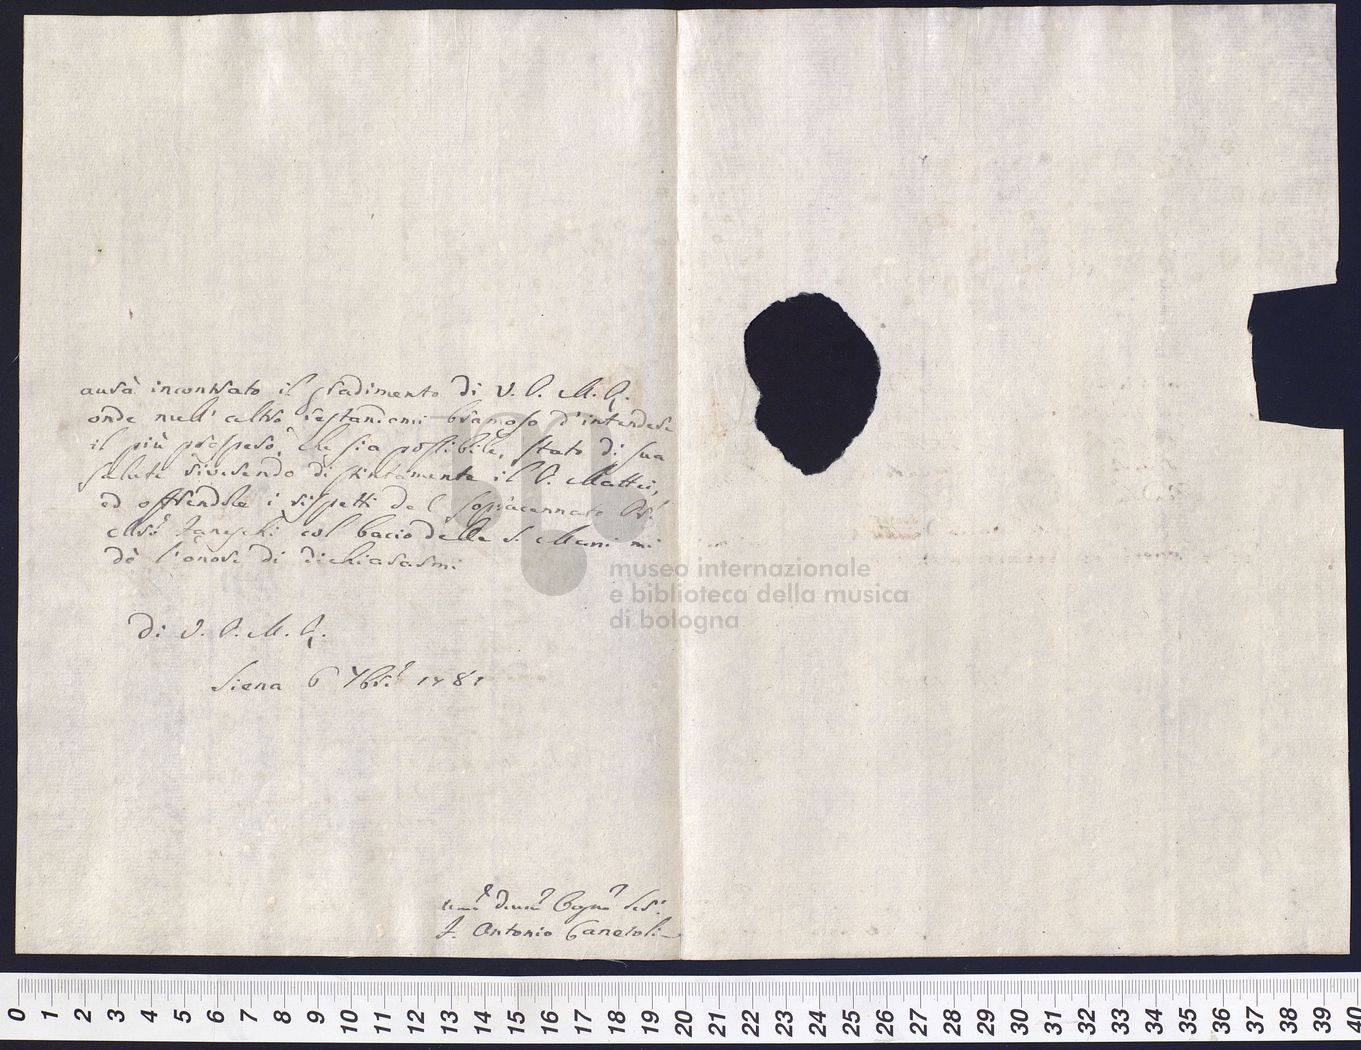 aurà incontrato il gradimento di V. P. M. R.
onde null' altro restandomi bramoso d'intendere
il più prospero, che sia possibile, stato di sua
salute riverendo distintamente il P. Mattei,
ed offrendole i rispetti del sopraccennato
col bacio delle S. Mani mi
dò l'onore di dichiararmi
Di V. P. M. R.
Siena 6 7bre 1781
F. Antonio Canetoli
museo internazionale
e biblioteca della musica
di bologna
0 1 2 3 4 5 6 7 8 9 10 11 12 13 14 15 16 17 18 19 20 21 22 23 24 25 26 27 28 29 30 31 32 33 34 35 36 37 38 39 40